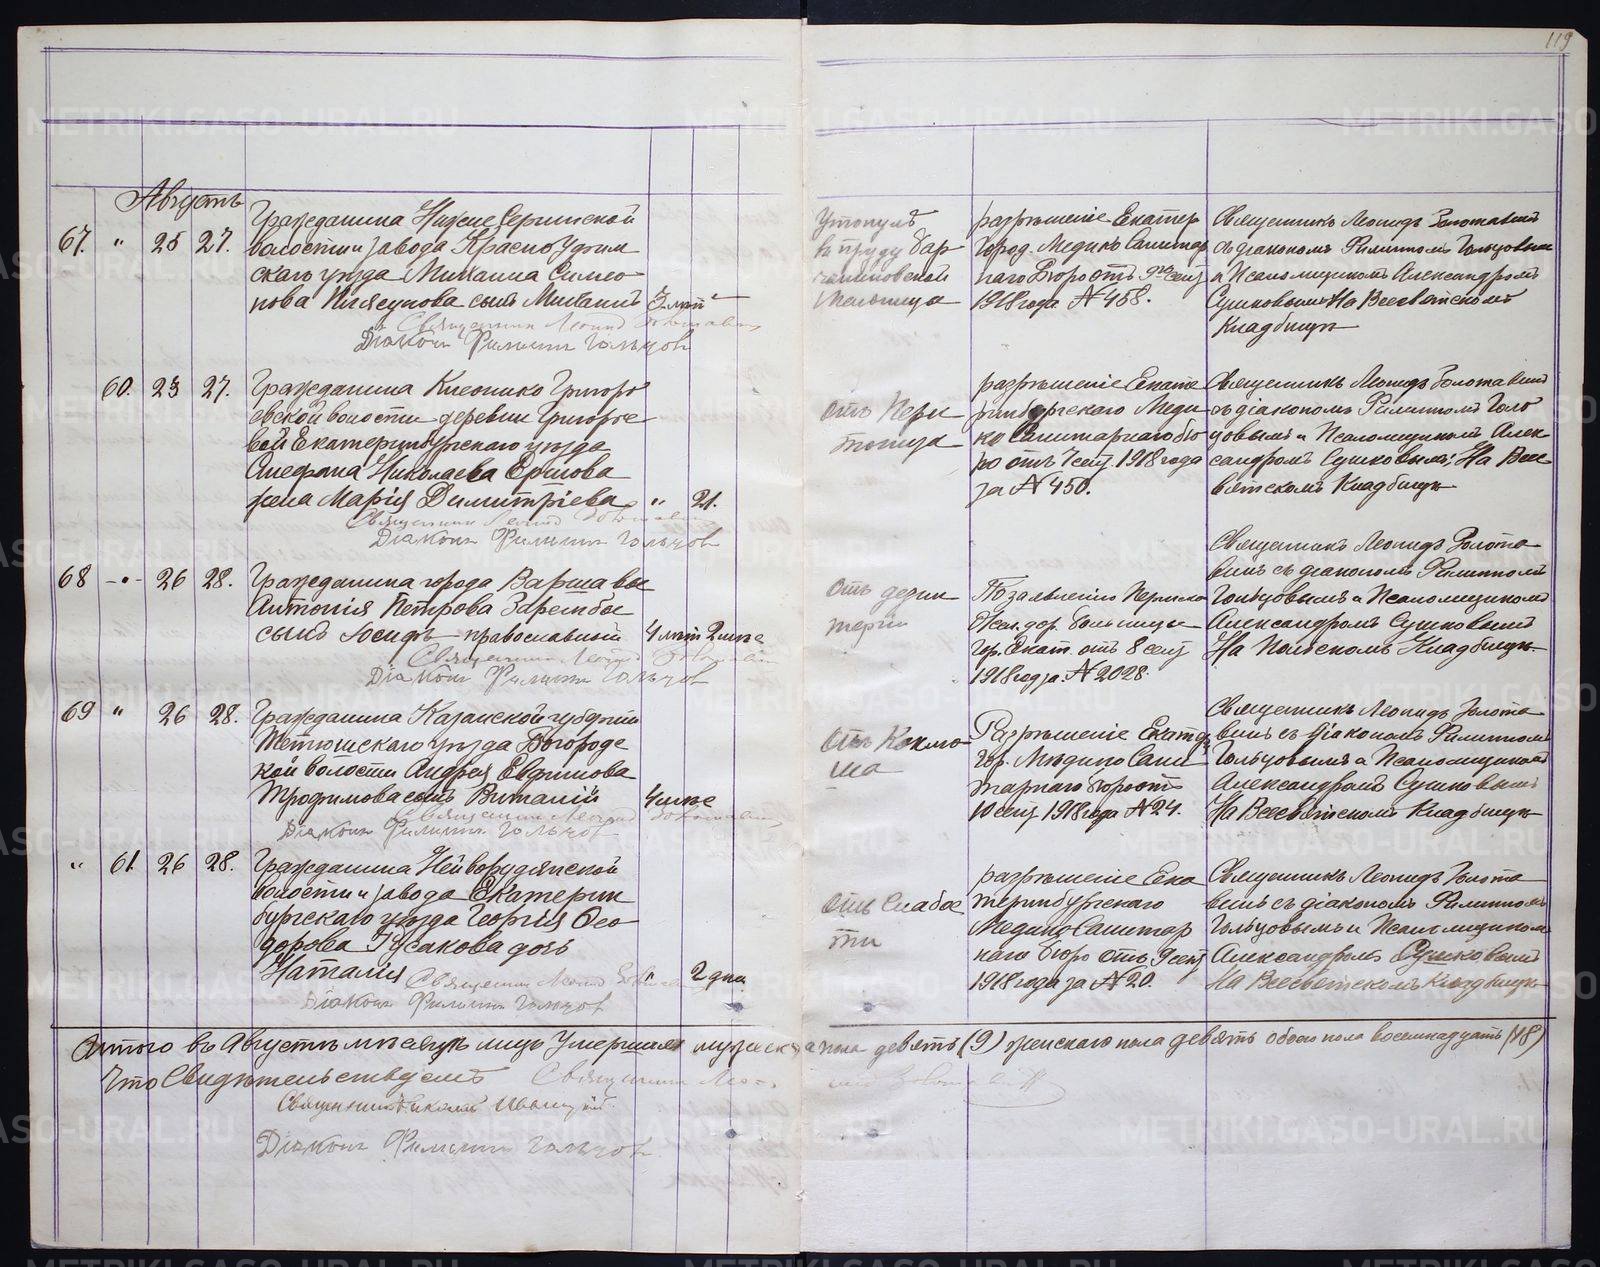 119
Августъ
67. " 25 27. Гражданина Нижне Сергинской
волости и завода Красноуфим
скаго уѣзда Михаила Симео
нова сынъ 3 лѣт
Священник Леонид
Діаконъ Филиппъ Гольцов
Утонулъ
въ пруду
разрѣшеніе Екатер
Город. Медико Санитар
наго Бюро отъ 9го сент
1918 года №458.
Священникъ Леонидъ Золотавинъ
съ діакономъ Филиппомъ Гольцовым
и Псаломщикомъ Александромъ
Сушковымъ На Всесвятскомъ
Кладбищѣ
60. 23 27. Гражданина Григорь
евской волости деревни Григорье
вой Екатеринбургскаго уѣзда
Николаева Ершова
жена Марія Димитріева " 21.
Священник Леонид
Діаконъ Филиппъ Гольцов
Отъ Пери
тонита
разрѣшеніе Екате
ринбургскаго Меди
ко Санитарнаго бю
ро отъ 7 сент 1918 года
за №450.
Священникъ Леонидъ Золотавинъ
съ діакономъ Филиппомъ Голь
цовымъ и Псаломщикомъ Алек
сандромъ Сушковымъ, На Все
святскомъ Кладбищѣ
68 - " - 26 28. Гражданина города Варшавы
Антонія Петрова Зарембы
сынъ Іосифъ православный 4 лѣт 2 мѣс
Священник Леонид
Діаконъ Филиппъ Гольцов
Отъ дезин
теріи
По заявленію
Жел. дор. больницы
гор. Екат. отъ 8 сент
1918 год за №2028.
Священникъ Леонидъ Золота
винъ съ діакономъ Филиппомъ
Гольцовымъ и Псаломщикомъ
Александромъ Сушковымъ
На Польскомъ Кладбищѣ
69 " 26 28. Гражданина Казанской губерніи
Тетюшскаго уѣзда Богородс
кой волости Андрея Евфимова
Трофимова сынъ Виталій 4 мѣс
Священник Леонид
Діаконъ Филиппъ Гольцов
Отъ Коклю
ша
Разрѣшеніе Екатер
Гор. Медико Сани
тарнаго бюро отъ
10 сент 1918 года №24.
Священникъ Леонидъ Золота
винъ съ діакономъ Филиппомъ
Гольцовымъ и Псаломщикомъ
Александромъ Сушковымъ
На Всесвятскомъ Кладбищѣ
" 61. 26 28. Гражданина Нейворудянской
волости и завода Екатерин
бургскаго уѣзда Георгія Ѳео
дорова Гусакова дочь
Наталія " 2 дня
Священник Леонид
Діаконъ Филиппъ Гольцов
Отъ Слабос
ти
разрѣшеніе Ека
теринбургскаго
Медико Санитар
наго бюро отъ 9 сент
1918 года за №20.
Священникъ Леонидъ Золота
винъ съ діакономъ Филиппомъ
Гольцовымъ и Псаломщиком
Александромъ Сушковымъ
На Всесвятскомъ Кладбищѣ
Итого въ Августѣ мѣсяцѣ лицъ Умершихъ мужскаго пола девять (9) женскаго пола девять обоего пола восемнадцать (18)
Что Свидѣтельствуемъ Священник Леонид
Священникъ Николай
Діаконъ Филиппъ Гольцов
METRIKI.GASO-URAL.RU